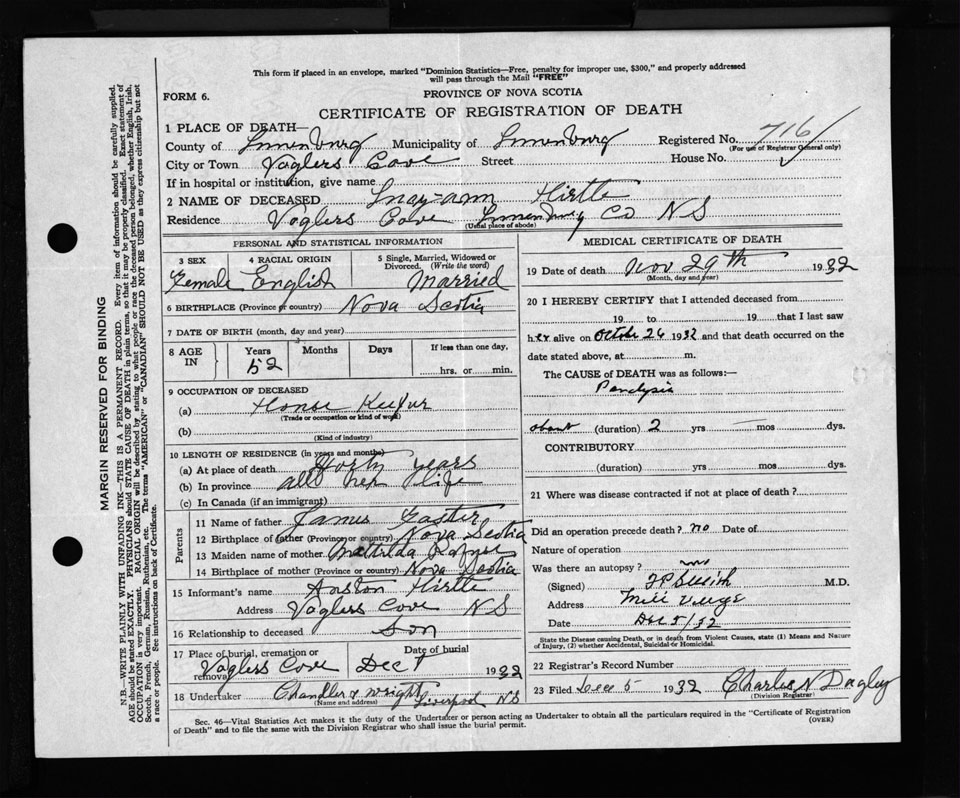 This form if placed in an envelope, marked "Dominion Statistics—Free, penalty for improper use, $300," and properly addressed
will pass through the Mail "FREE"
FORM 6.
PROVINCE OF NOVA SCOTIA
CERTIFICATE OF REGISTRATION OF DEATH
1 PLACE OF DEATH—
County of Lunenburg Municipality of Lunenburg Registered No. 716
(For use of Registrar General only)
City or Town Voglers Cove Street House No.
If in hospital or institution, give name
2 NAME OF DECEASED May-ann Hirtle
Residence Voglers Cove Lunenburg Co NS
(Usual place of abode)
PERSONAL AND STATISTICAL INFORMATION
3 SEX 4 RACIAL ORIGIN 5 Single, Married, Widowed or
Divorced. (Write the word)
Female English Married
6 BIRTHPLACE (Province or country) Nova Scotia
7 DATE OF BIRTH (month, day and year)
8 AGE IN Years Months Days If less than one day,
52 hrs. or min.
9 OCCUPATION OF DECEASED
(a) House
(Trade or occupation or kind of work)
(b)
(Kind of industry)
10 LENGTH OF RESIDENCE (in years and months)
(a) At place of death Forty years
(b) In province all her life
(c) In Canada (if an immigrant)
Parents
11 Name of father James
12 Birthplace of father (Province or country) Nova Scotia
13 Maiden name of mother Mathilda
14 Birthplace of mother (Province or country) Nova Scotia
15 Informant's name Hirtle
Address Voglers Cove NS
16 Relationship to deceased Son
17 Place of burial, cremation or removal Date of burial
Voglers Cove Dec 1 1932
18 Undertaker Chandler & Wright Liverpool NS
(Name and address)
MEDICAL CERTIFICATE OF DEATH
19 Date of death Nov 29th 1932
(Month, day and year)
20 I HEREBY CERTIFY that I attended deceased from
19 to 19 that I last saw
her alive on October 26 1932 and that death occurred on the
date stated above, at m.
The CAUSE of DEATH was as follows:—
Paralysis
about (duration) 2 yrs — mos dys.
CONTRIBUTORY
(duration) yrs mos dys.
21 Where was disease contracted if not at place of death?
Did an operation precede death? no Date of
Nature of operation
Was there an autopsy? no
(Signed) M.D.
Address Mill Village
Date Dec 5/32
State the Disease causing Death, or in death from Violent Causes, state (1) Means and Nature
of Injury, (2) whether Accidental, Suicidal or Homicidal.
22 Registrar's Record Number
23 Filed Dec 5 1932 Charles N Dagley
(Division Registrar)
Sec. 46—Vital Statistics Act makes it the duty of the Undertaker or person acting as Undertaker to obtain all the particulars required in the "Certificate of Registration
of Death" and to file the same with the Division Registrar who shall issue the burial permit.
(OVER)
MARGIN RESERVED FOR BINDING
N.B.—WRITE PLAINLY WITH UNFADING INK—THIS IS A PERMANENT RECORD. Every item of information should be carefully supplied.
AGE should be stated EXACTLY. PHYSICIANS should STATE CAUSE OF DEATH in plain terms, so that it may be properly classified. Exact statement of
OCCUPATION is very important. RACIAL ORIGIN will be described by stating to what people or race the deceased person belonged, whether English, Irish,
Scotch, French, German, Russian, Ruthenian, etc. The terms "AMERICAN" or "CANADIAN" SHOULD NOT BE USED as they express citizenship but not
a race or people. See instructions on back of Certificate.